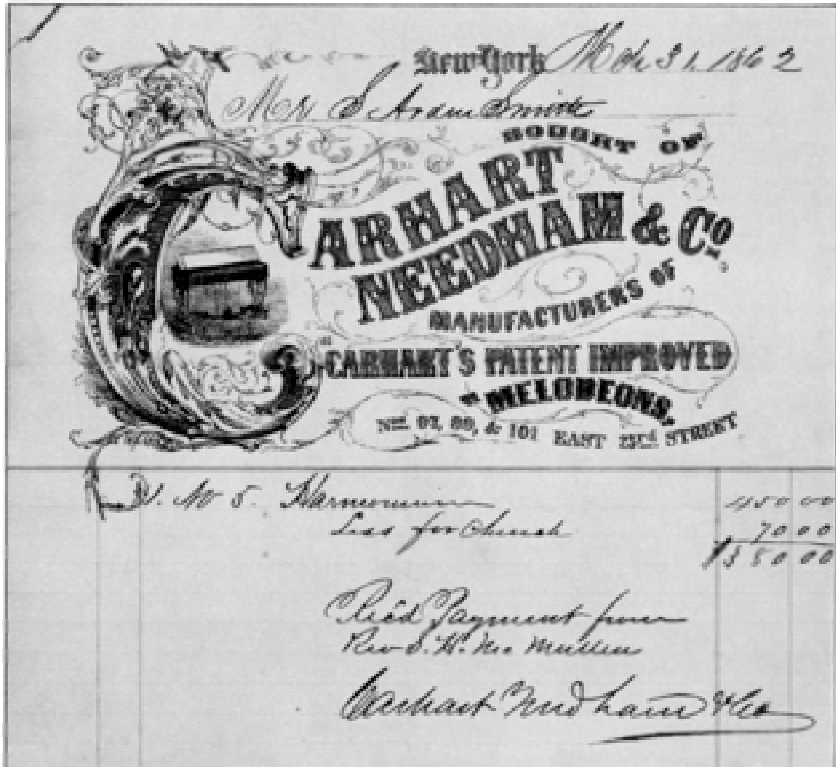 New York Mch 31, 1862
Mr S Arden Smith
BOUGHT OF
CARHART
NEEDHAM & Co.
MANUFACTURERS OF
CARHART'S PATENT IMPROVED
MELODEONS,
Nos. 97, 99, & 101 EAST 23rd STREET
1. No 5. Harmonium 450 00
Less for Church 70 00
$380 00
Recd Payment from
Rev S. W.
Carhart Needham & Co